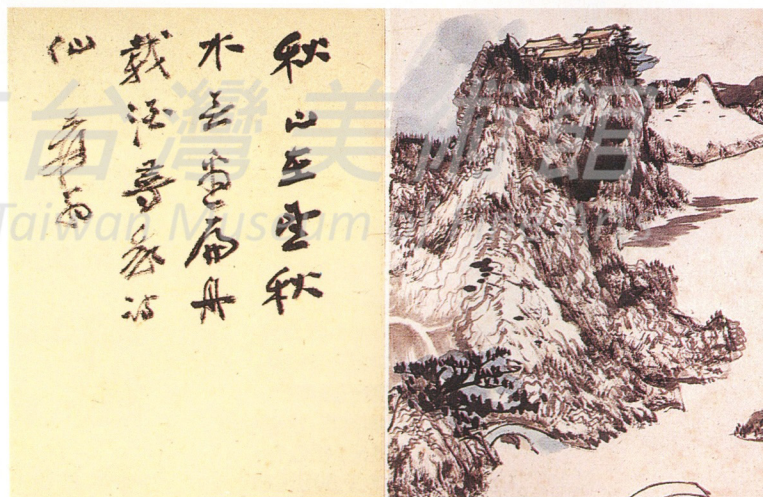 秋山在望秋
水无邊扁舟
載酒尋我詩
仙 爰翁
台灣美術館
Taiwan Museum of Fine Arts